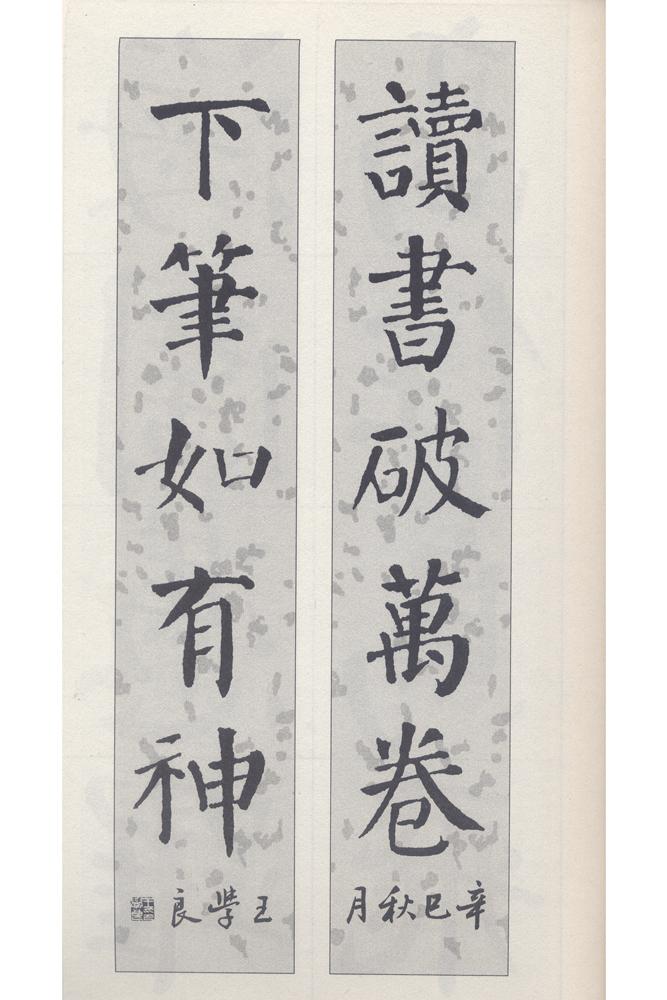 讀書破萬卷
辛巳秋月
下筆如有神
王學良